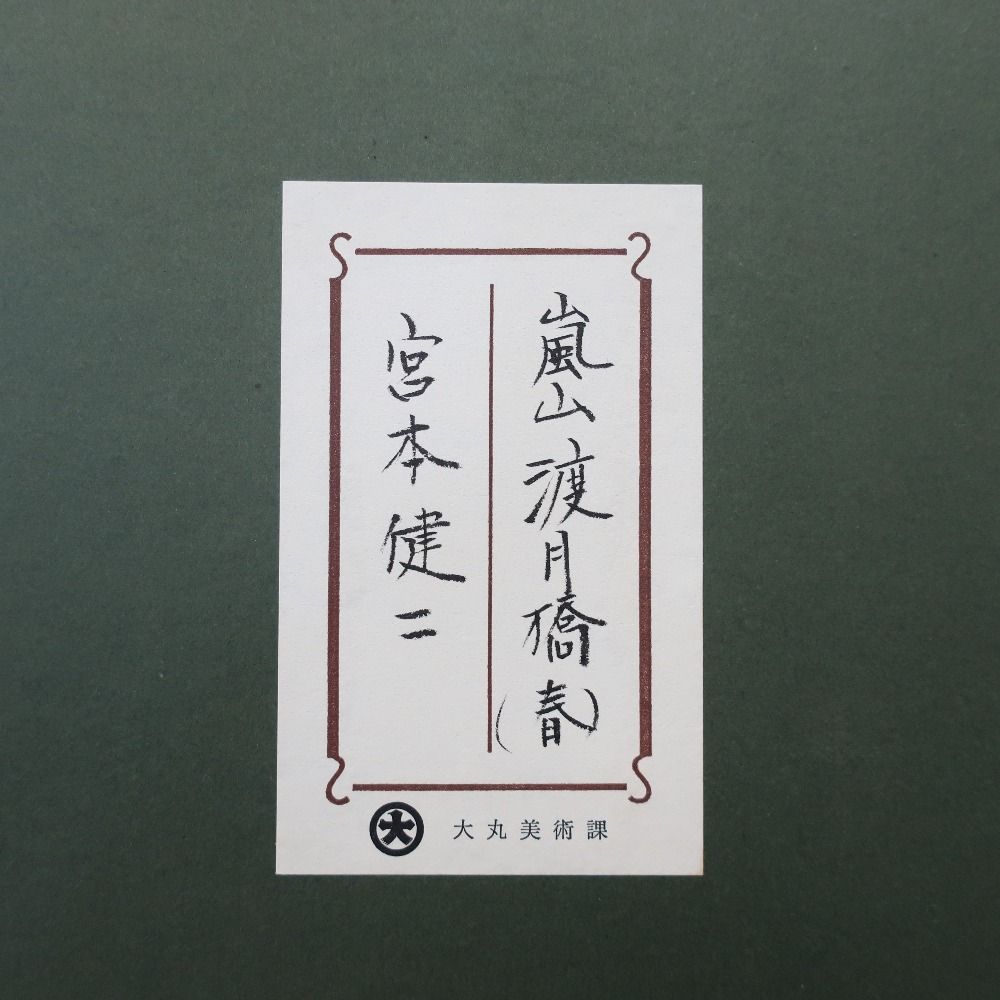 嵐山渡月橋(春)
宮本健二
大
大丸美術課